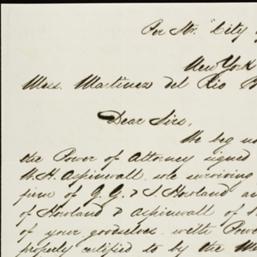 Per Str. "City
New York
Mess. Martinez del Rio
Dear Sirs,
We beg
the Power of Attorney signed
W.H. Aspinwall sole surviving
firm of G.G. & S Howland an
of Howland & Aspinwall of
of your goodselves. with Pow
properly certified to by the